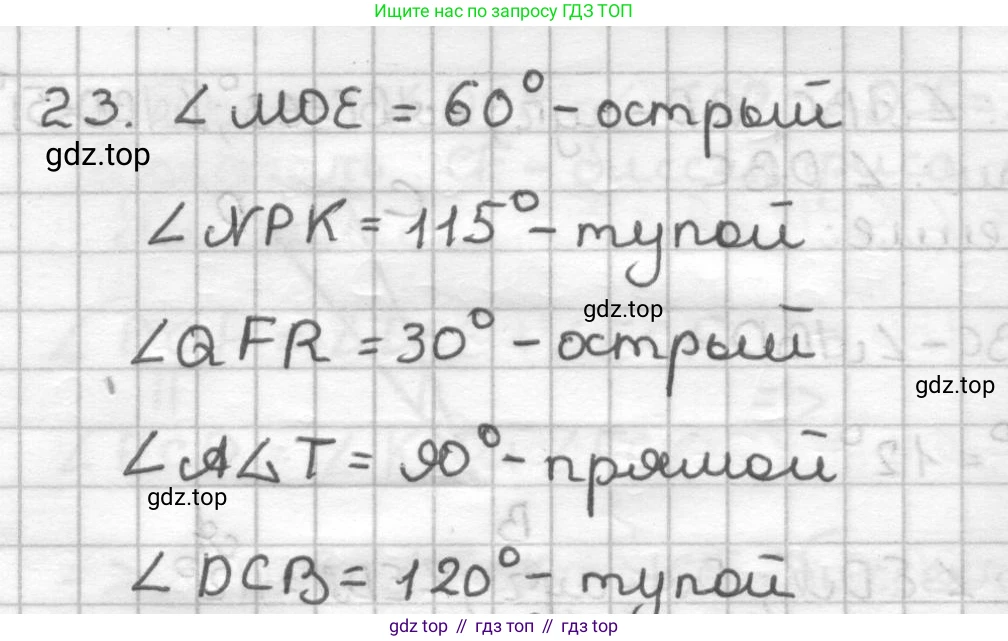 Ищите нас по запросу ГДЗ ТОП
23. ∠MOE = 60° - острый
gdz.top
∠NPK = 115° - тупой
gdz.top
∠QFR = 30° - острый
gdz.top
∠ALT = 90° - прямой
gdz.top
∠DCB = 120° - тупой
gdz top // гдз топ // gdz top